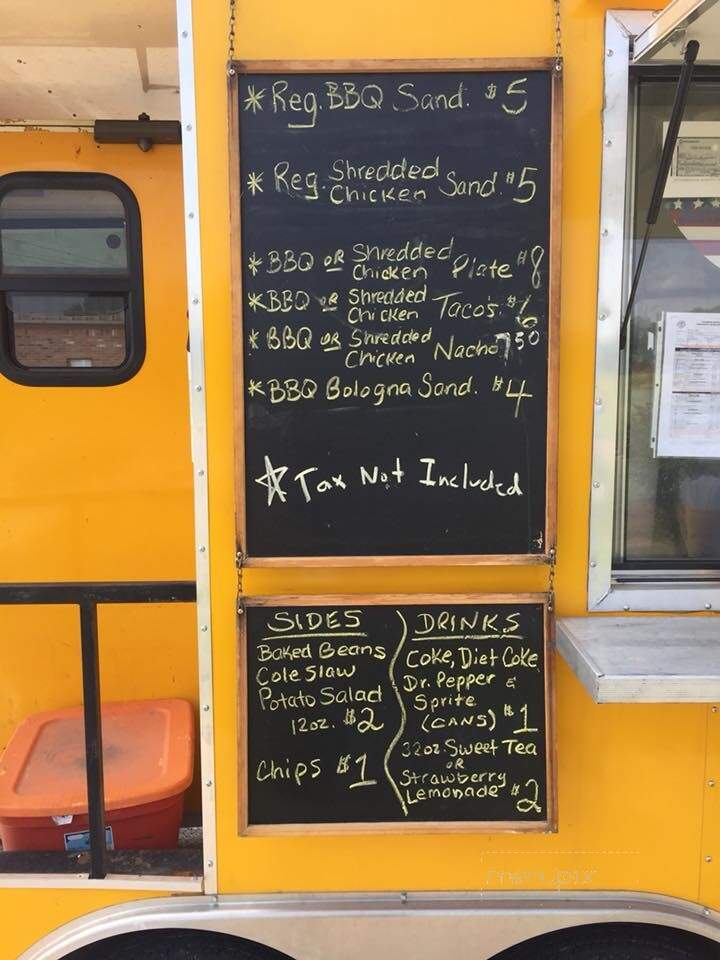 * Reg. BBQ Sand. $5
* Reg. Shredded Chicken Sand. $5
* BBQ OR Shredded Chicken Plate $8
* BBQ OR Shredded Chicken Taco's $6
* BBQ OR Shredded Chicken Nacho 750
* BBQ Bologna Sand. $4
* Tax Not Included
SIDES
Baked Beans
Cole Slaw
Potato Salad
12oz. $2
Chips $1
DRINKS
Coke, Diet Coke
Dr. Pepper &
Sprite
(CANS) $1
32oz Sweet Tea
OR
Strawberry
Lemonade $2